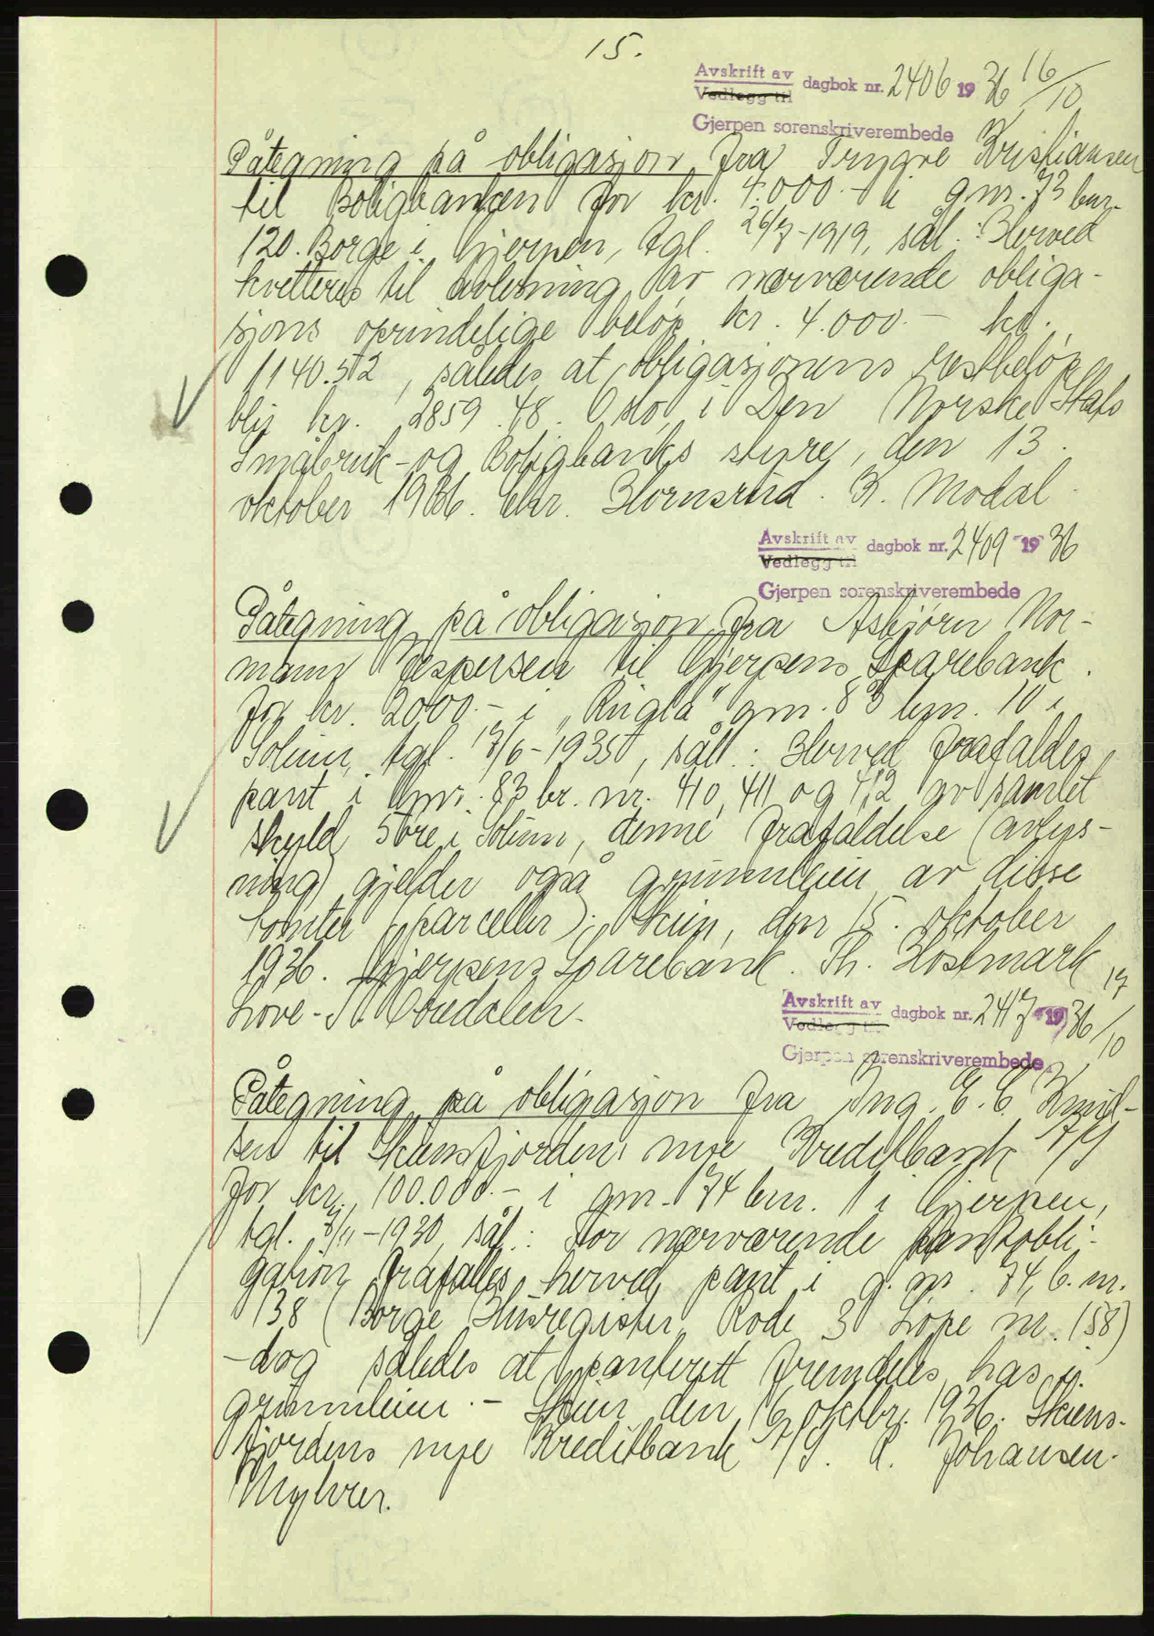 15.
Avskrift av
Vedlegg til dagbok nr. 2406 1936 16/10
Gjerpen sorenskriverembede
Påtegning på obligasjon fra Trygve Kristiansen
til Boligbanken for kr. 4.000.- i gnr. 73 bnr.
120. Borge i Gjerpen, tgl. 26/7-1919, sål.: Herved
kvitteres til avlysning av nærværende obliga-
sjons oprindelige beløp kr. 4.000.- kr.
1140.52, således at obligasjonens restbeløp
blir kr. 2859.48. Oslo, i Den Norske Stats
Småbruk- og Boligbanks styre, den 13.
oktober 1936. Chr. Hornsrud. K. Modal.
Avskrift av
Vedlegg til dagbok nr. 2409 1936
Gjerpen sorenskriverembede
Påtegning på obligasjon fra Asbjørn Nor-
mann Jespersen til Gjerpens Sparebank.
for kr. 2000.- i gnr. 83 bnr. 10 i
Solum, tgl. 17/6-1935, sål.: Herved frafaldes
pant i gnr. 83 br. nr. 410, 411 og 412 av samlet
skyld 5 øre i Solum, denne frafaldelse (avlys-
ning) gjelder også grunnleien av disse
tomter (parceller). Skien, den 15. oktober
1936. Gjerpens Sparebank. Th. Høstmark
Love-
Avskrift av
Vedlegg til dagbok nr. 2417 1936 17/10
Gjerpen sorenskriverembede
Påtegning på obligasjon fra Ing. E. C. Knud-
sen til Skiensfjordens nye Kreditbank A/S
for kr. 100.000.- i gnr. 74 bnr. 1 i Gjerpen,
tgl. 7/11-1930, sål.: For nærværende pankobli-
gation frafalles herved pant i g. nr. 74, b. nr.
138 (Borge Husregister Rode 3 Løpe nr. 158)
- dog således at panterett fremdeles has i
grunnleien. - Skien den 16 oktbr. 1936. Skiens-
fjordens nye Kreditbank A/S. Johansen.
Myhrer.